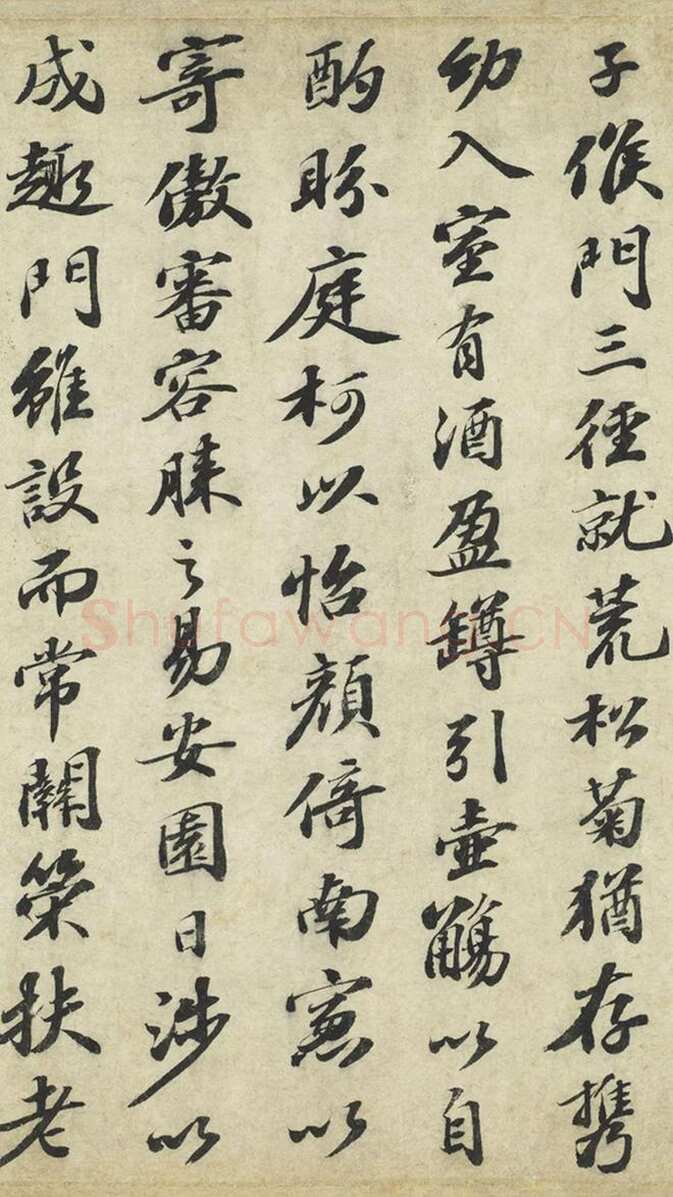 子候門三徑就荒松菊猶存携
幼入室有酒盈罇引壺觴以自
酌眄庭柯以怡顏倚南窻以
寄傲審容膝之易安園日涉以
成趣門雖設而常關策扶老
Shufawang.CN